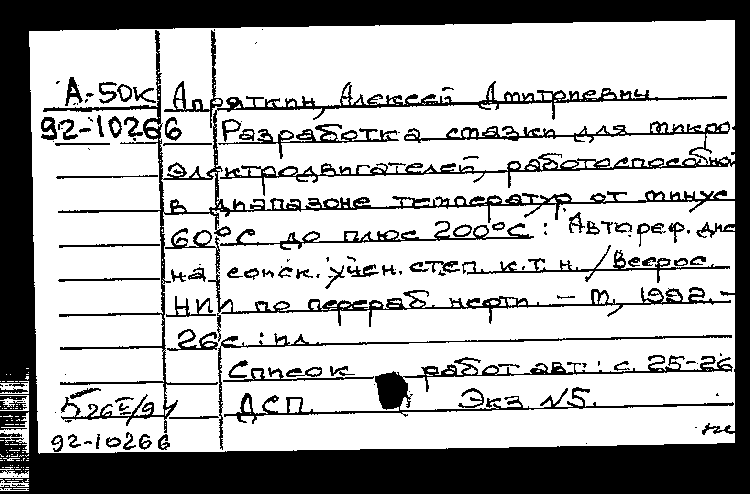 А-50к Апряткин, Алексей Дмитриевич.
92-10266 Разработка смазки для микро-
электродвигателей, работоспособной
в диапазоне температур от минус
60°С до плюс 200°С : Автореф. дис
на соиск. учен. степ. к.т.н. / Всерос.
НИИ по перераб. нефти. – М., 1992. –
26с. : ил.
Список работ авт.: с. 25-26
ДСП. Экз. №5.
92-10266